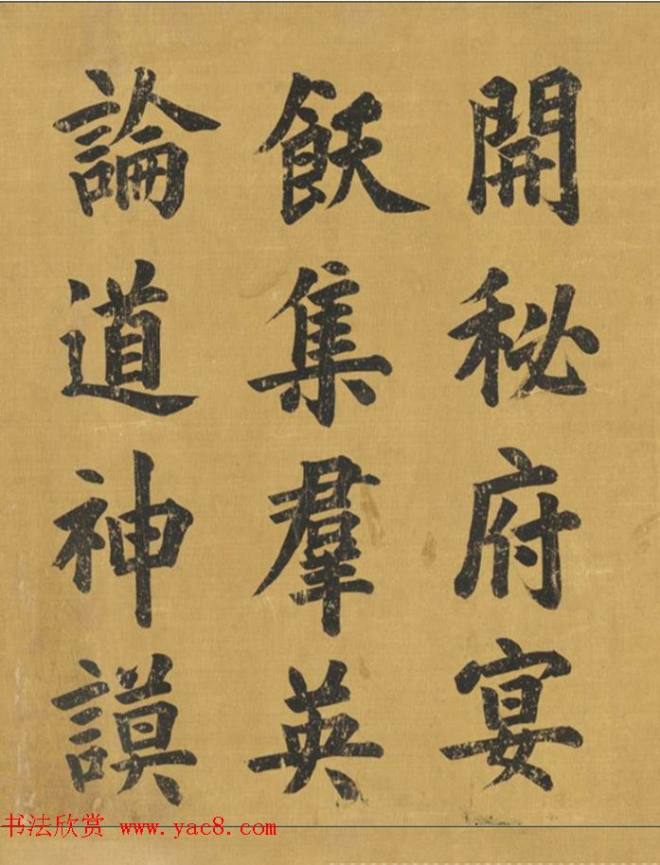 開秘府宴
飫集羣英
論道神謨
书法欣赏 www.yac8.com